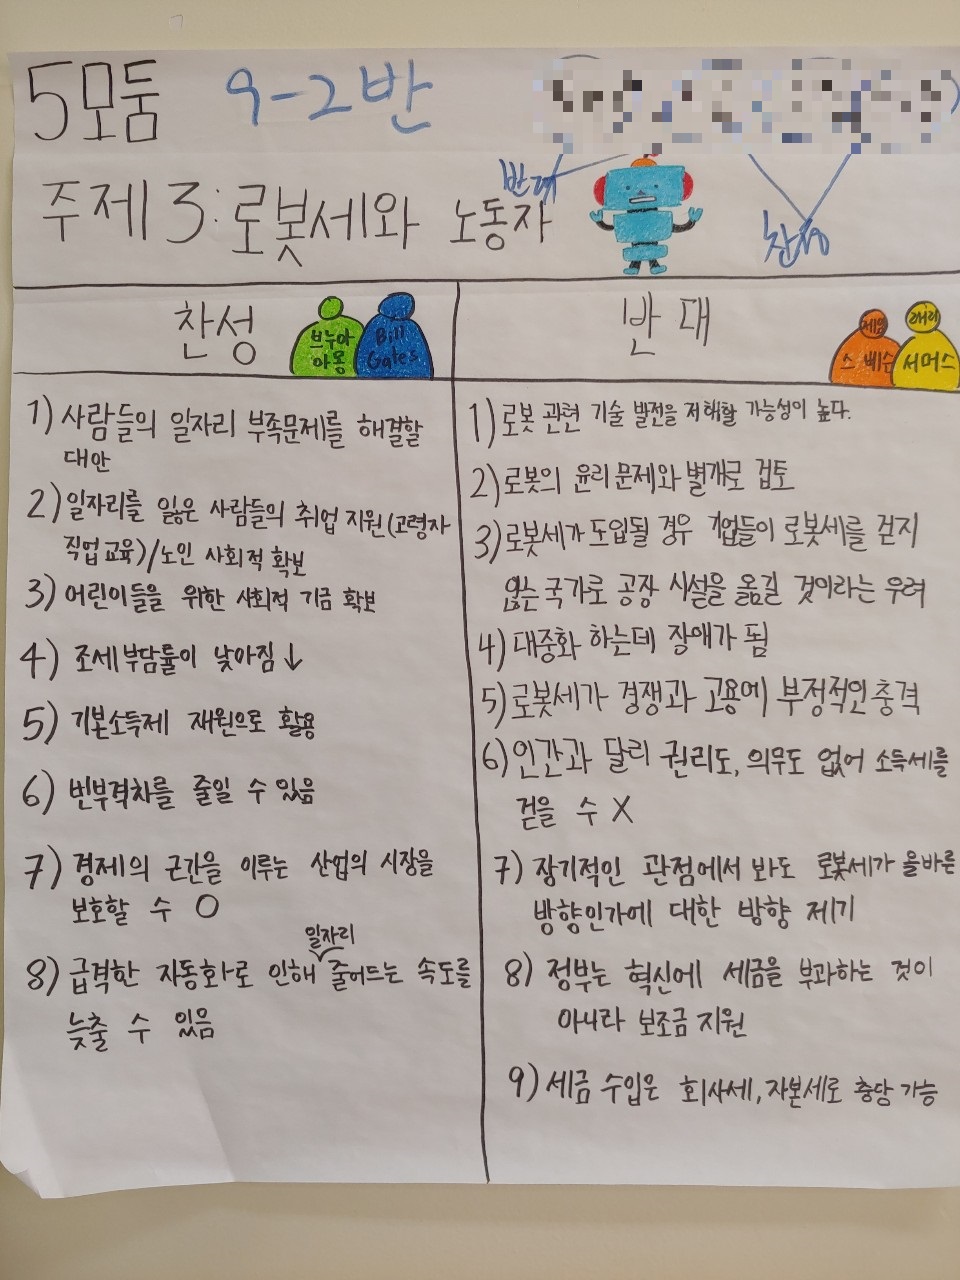 5모둠 9-2반
반대
주제 3: 로봇세와 노동자
찬성
찬성
브누아
아몽
Bill
Gates
반대
제임
스 베슨
래리
서머스
1) 사람들의 일자리 부족문제를 해결할
대안
2) 일자리를 잃은 사람들의 취업 지원(고령자
직업교육)/노인 사회적 확보
3) 어린이들을 위한 사회적 기금 확보
4) 조세부담률이 낮아짐 ↓
5) 기본소득제 재원으로 활용
6) 빈부격차를 줄일 수 있음
7) 경제의 근간을 이루는 산업의 시장을
보호할 수 O
일자리
8) 급격한 자동화로 인해 줄어드는 속도를
늦출 수 있음
1) 로봇 관련 기술 발전을 저해할 가능성이 높다.
2) 로봇의 윤리문제와 별개로 검토
3) 로봇세가 도입될 경우 기업들이 로봇세를 걷지
않는 국가로 공장 시설을 옮길 것이라는 우려
4) 대중화 하는데 장애가 됨
5) 로봇세가 경쟁과 고용에 부정적인 충격
6) 인간과 달리 권리도, 의무도 없어 소득세를
걷을 수 X
7) 장기적인 관점에서 봐도 로봇세가 올바른
방향인가에 대한 방향 제기
8) 정부는 혁신에 세금을 부과하는 것이
아니라 보조금 지원
9) 세금 수입은 회사세, 자본세로 충당 가능